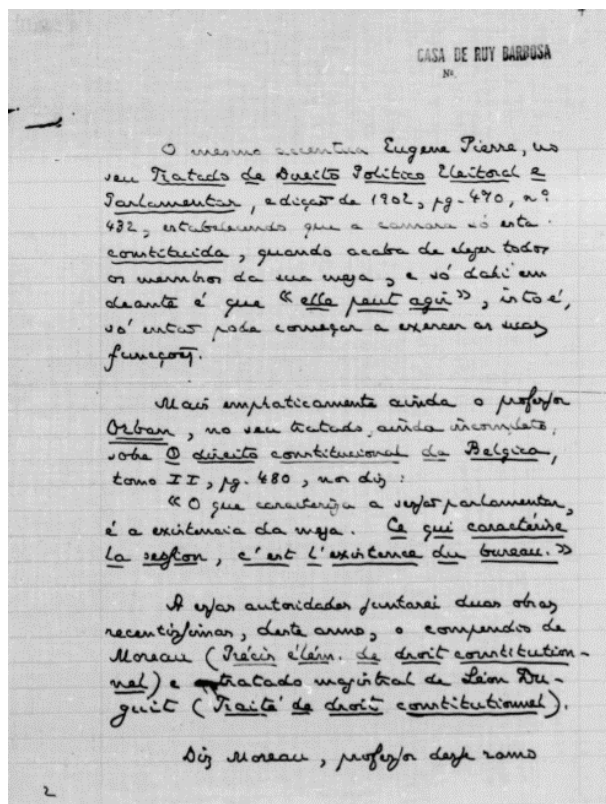 CASA DE RUY BARBOSA
Nº.
O mesmo accentua Eugene Pierre, no
seu Tratado de Direito Politico Eleitoral e
Parlamentar, edição de 1902, pg. 470, nº
432, estabelecendo que a camara só está
constituida, quando acaba de eleger todos
os membros da sua meza, e só dahi em
deante é que « elle peut agir », isto é,
só então póde começar a exercer as suas
funcções.
Mais emphaticamente ainda o professor
Orban, no seu tratado, ainda incompleto,
sobre O direito constitucional da Belgica,
tomo II, pg. 480, nos diz:
« O que caracteriza a sessão parlamentar,
é a existencia da meza. Ce qui caractérise
la session, c'est l'existence du bureau. »
A essas autoridades juntarei duas obras
recentissimas, deste anno, o compendio de
Moreau (Précis élém. de droit constitution-
nel) e tratado magistral de Léon Du-
guit (Traité de droit constitutionnel).
Diz Moreau, professor desse ramo
2